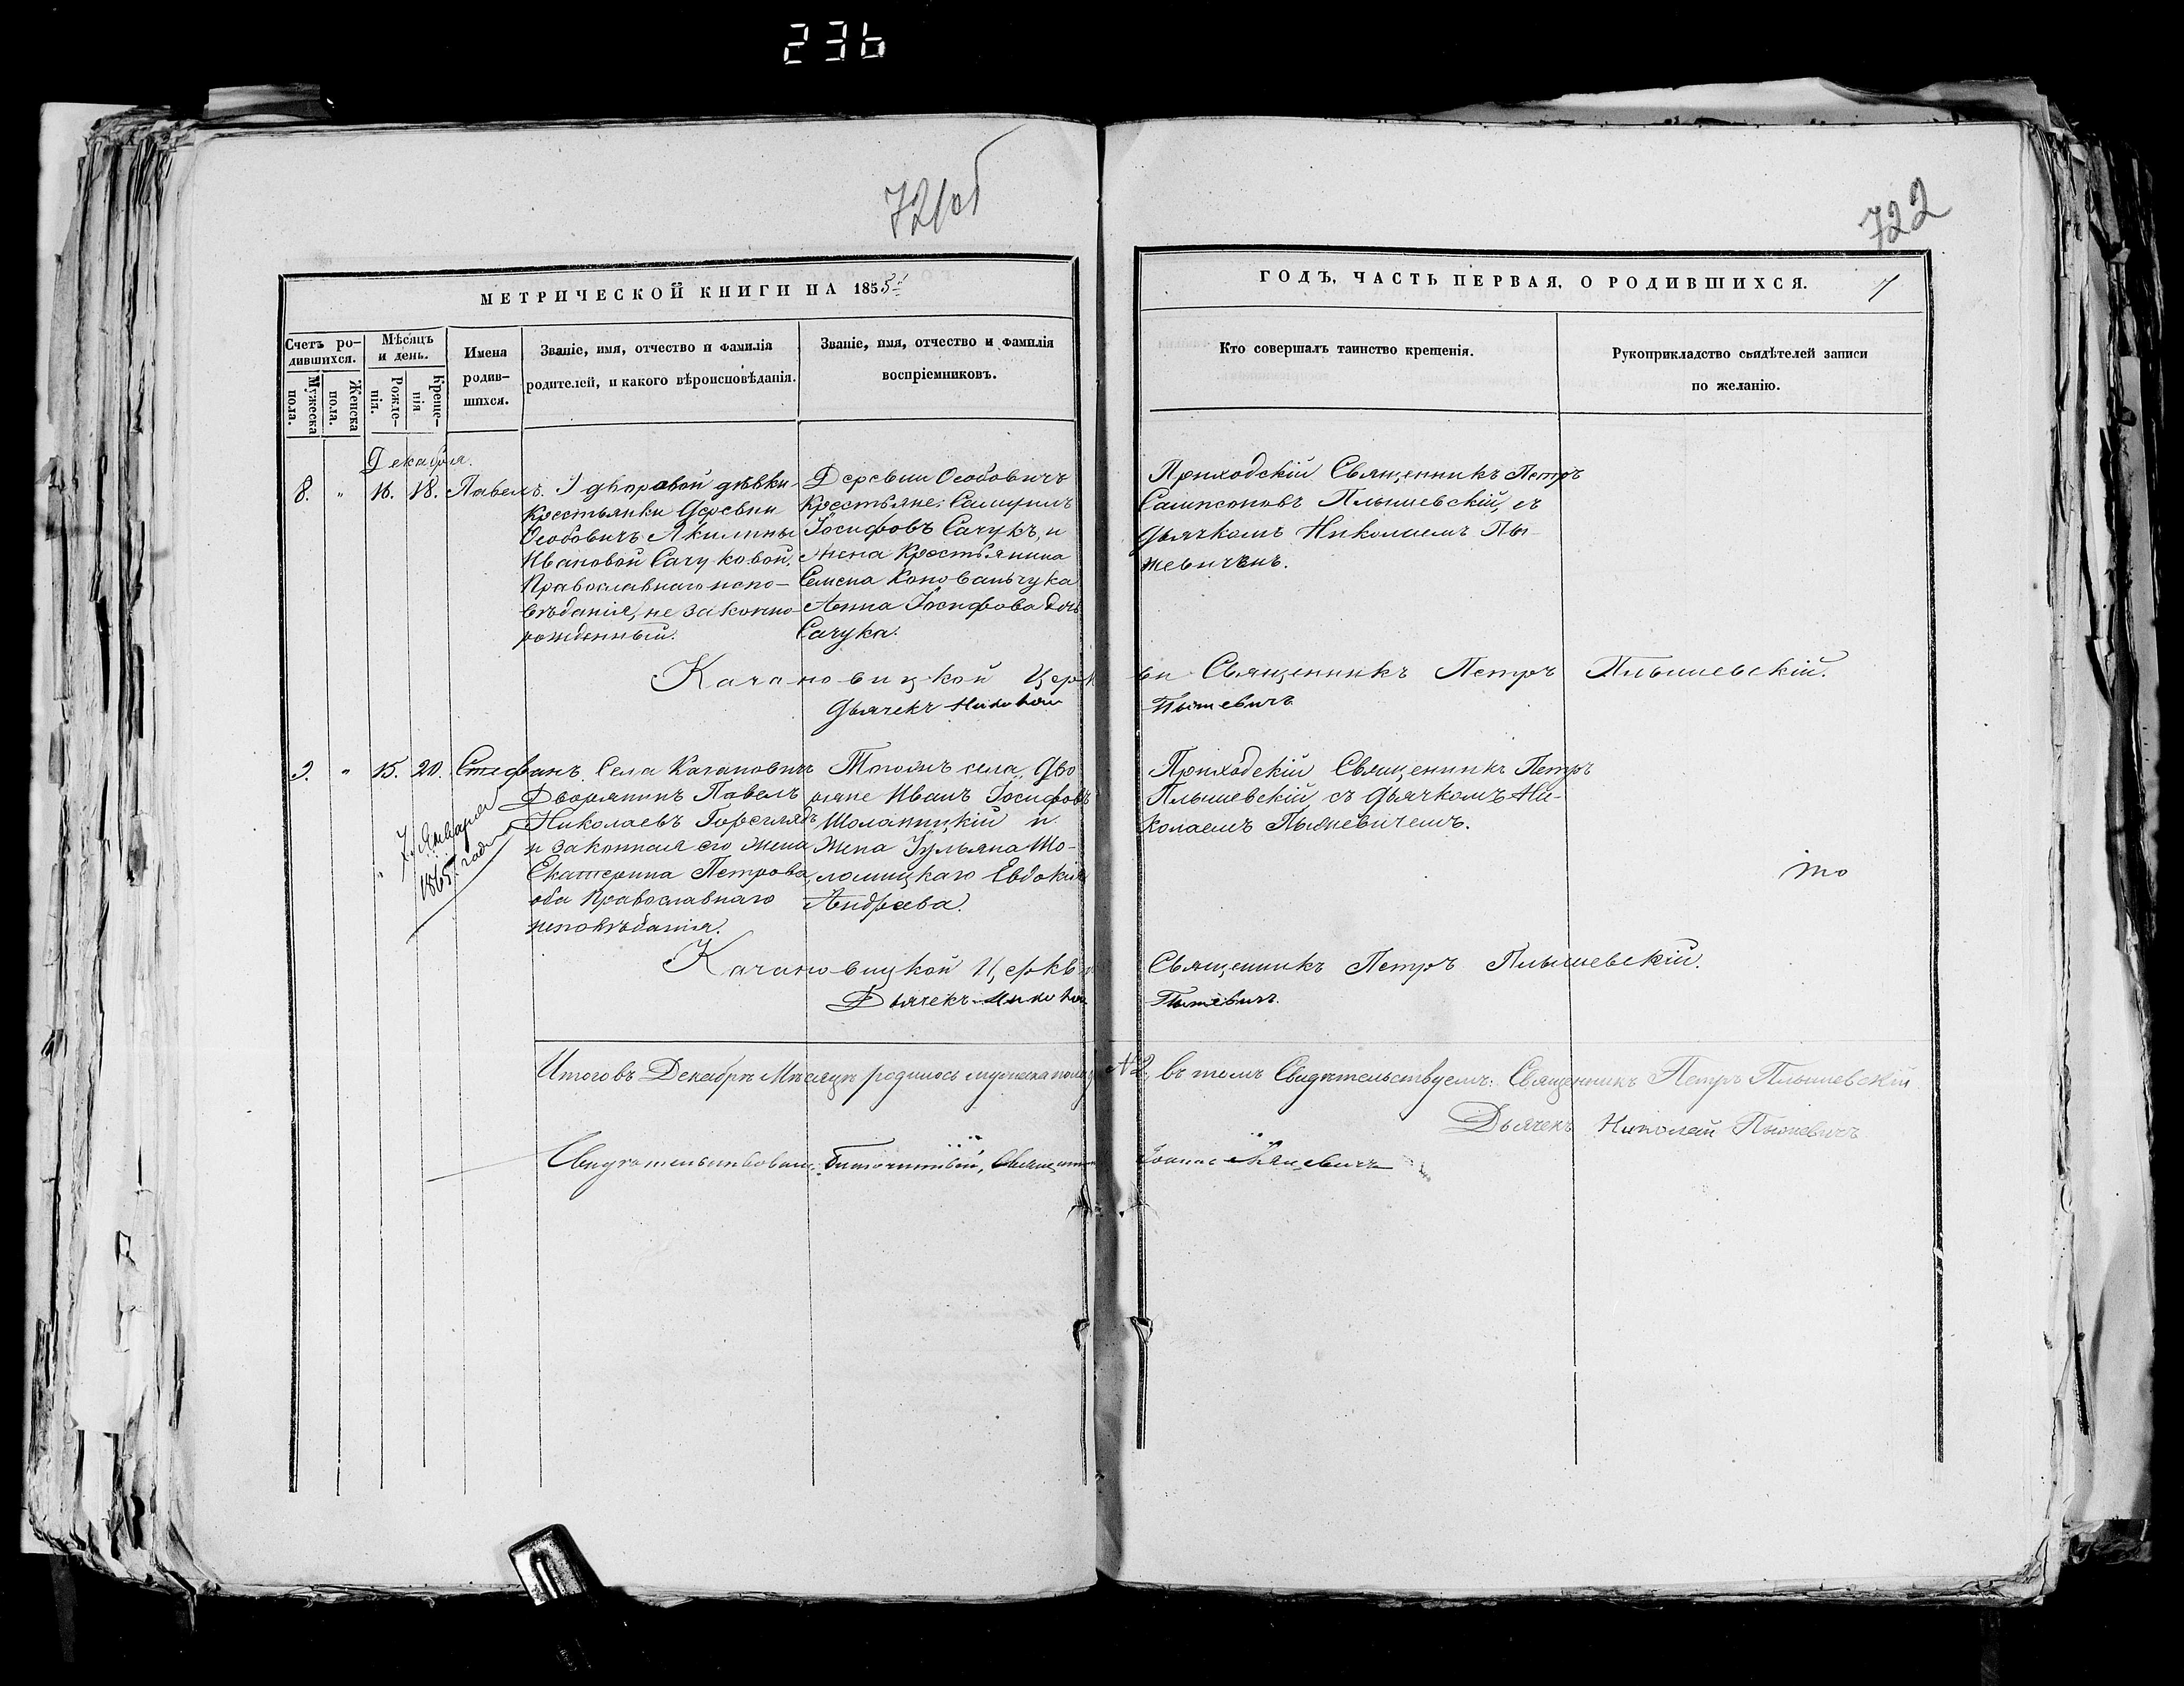 236
721об
722
МЕТРИЧЕСКОЙ КНИГИ НА 1855й
ГОДЪ, ЧАСТЬ ПЕРВАЯ, О РОДИВШИХСЯ.
Счетъ ро-
дившихся.
Мужеска
пола.
Женска
пола.
Мѣсяцъ
и день.
Рожде-
нія.
Креще-
нія
Имена
родив-
шихся.
Званіе, имя, отчество и фамилія
родителей, и какого вѣроисповѣданія.
Званіе, имя, отчество и фамилія
воспріемниковъ.
Кто совершалъ таинство крещенія.
Рукоприкладство свидѣтелей записи
по желанію.
Декабря.
8. " 16. 18. Павелъ.
дворовой дѣвки
Крестьянки Деревни
Особовичъ Акилины
Ивановой Сачуковой,
Православнаго испо-
вѣданія, не законно
рожденный.
Деревни Особовичъ
Крестьяне:
Іосифовъ Сачукъ, и
жена Крестьянина
Семена Коновальчука
Анна Іосифова дочь
Сачука.
Приходскій Священникъ Петръ
Сампсоновъ Плышевскій, съ
дьячкомъ Николаемъ Пы-
жевичемъ.
Качановицкой Церкви Священникъ Петръ Плышевскій.
Дьячекъ Николай Пыжевичъ
9. " 15. 20. Стефанъ.
1865 года
Села Качановичъ
Дворянинъ Павелъ
Николаевъ
и законная его жена
Екатерина Петрова,
оба Православнаго
исповѣданія.
Тогожъ села, Дво
ряне Иванъ Іосифовъ
Шоломицкій и
жена Іульяна Шо-
ломицкаго Евдокія
Андреева.
Приходскій Священникъ Петръ
Плышевскій съ дьячкомъ Ни-
колаемъ Пыжевичемъ.
то
Качановицкой Церкви Священникъ Петръ Плышевскій.
Дьячекъ Николай Пыжевичъ.
Итого въ Декабрѣ Мѣсяцѣ родилось мужеска пола № 2, въ томъ Свидѣтельствуемъ: Священникъ Петръ Плышевскій
Дьячекъ Николай Пыжевичъ
Свидѣтельствовалъ: Благочинный, Священникъ Іоаннъ